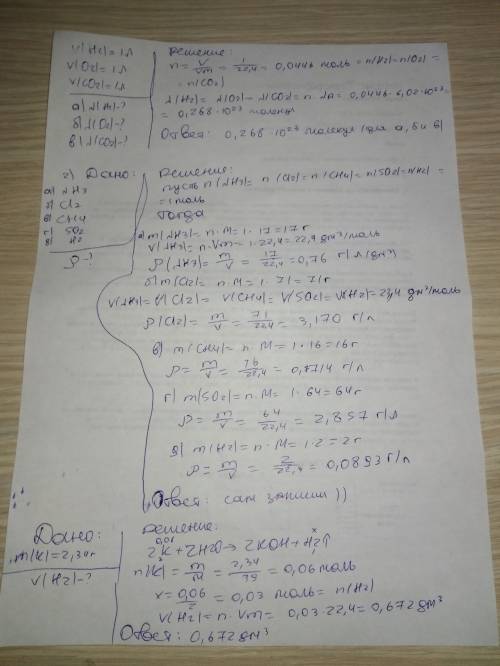 V(H2)=1л
V(O2)=1л
V(CO2)=1л
а) N(H2)-?
б) N(O2)-?
в) N(CO2)-?
Решение:
n = V/Vm = 1/22,4 = 0,0446 моль = n(H2)=n(O2)=
=n(CO2)
N(H2)= N(O2)= N(CO2)= n·Na= 0,0446·6,02·10^23=
= 0,268·10^23 молекул
Ответ: 0,268·10^23 молекул (для а, б и в)
2) Дано:
а) NH3
б) Cl2
в) CH4
г) SO2
д) H2
ρ-?
Решение:
пусть n(NH3)= n(Cl2)=n(CH4)=n(SO2)=n(H2)=
=1моль
тогда
а) m(NH3)= n·M= 1·17=17г
V(NH3)= n·Vm=1·22,4=22,4 дм³/моль
ρ(NH3)= m/V = 17/22,4 = 0,76 г/л (дм³)
б) m(Cl2)= n·M= 1·71=71г
V(NH3)=V(Cl2)= V(CH4)= V(SO2)=V(H2)=22,4 дм³/моль
ρ(Cl2)= m/V = 71/22,4 = 3,170 г/л
в) m(CH4)= n·M= 1·16=16г
ρ= m/V = 16/22,4 = 0,7714 г/л
г) m(SO2)= n·M= 1·64=64г
ρ= m/V = 64/22,4 = 2,857 г/л
д) m(H2)= n·M= 1·2=2г
ρ= m/V = 2/22,4 = 0,0893 г/л
Ответ: сам запиши ))
Дано:
m(K)=2,34г
V(H2)-?
Решение:
0,06 x
2K+2H2O→2KOH+H2↑
n(K)= m/M = 2,34/39 = 0,06моль
x= 0,06/2 = 0,03 моль= n(H2)
V(H2)= n·Vm= 0,03·22,4=0,672дм³
Ответ: 0,672дм³